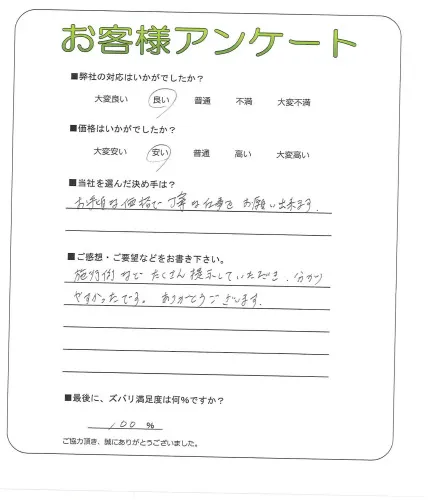 お客様アンケート
■弊社の対応はいかがでしたか？
大変良い 良い 普通 不満 大変不満
■価格はいかがでしたか？
大変安い 安い 普通 高い 大変高い
■当社を選んだ決め手は？
お手頃な価格で丁寧な仕事をお願い出来ます.
■ご感想・ご要望などをお書き下さい。
施行例などたくさん提示していただき、分かり
やすかったです。ありがとうございます.
■最後に、ズバリ満足度は何%ですか？
100 %
ご協力頂き、誠にありがとうございました。